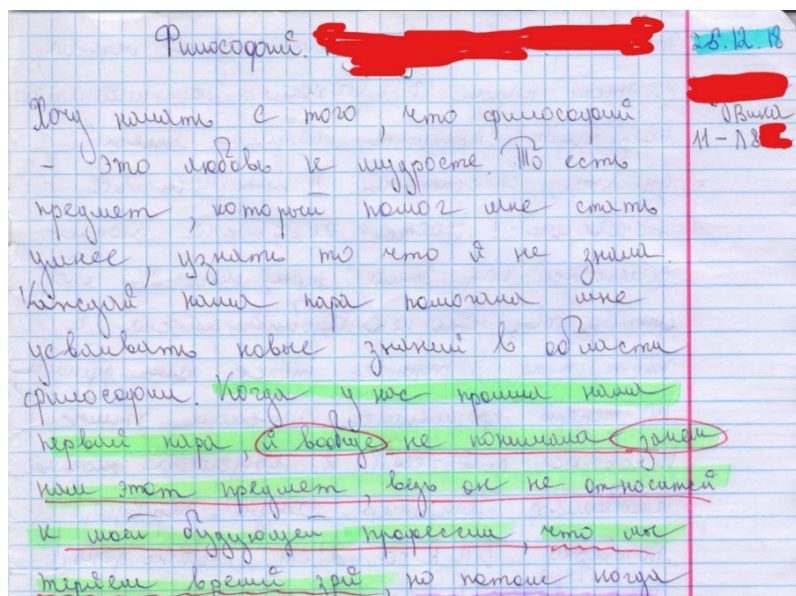 Философия.
25.12.18
Хочу начать с того, что философия
Вика
- это любовь к мудросте. То есть
11-Л8
предмет, который помог мне стать
умнее, узнать то что я не знала.
Каждая наша пара помогала мне
усваивать новые знания в области
философии. Когда у нас прошла наша
первая пара, я вообще не понимала зачем
нам этот предмет, ведь он не относится
к моей будующей профессии, что мы
теряем время зря, но потом когда